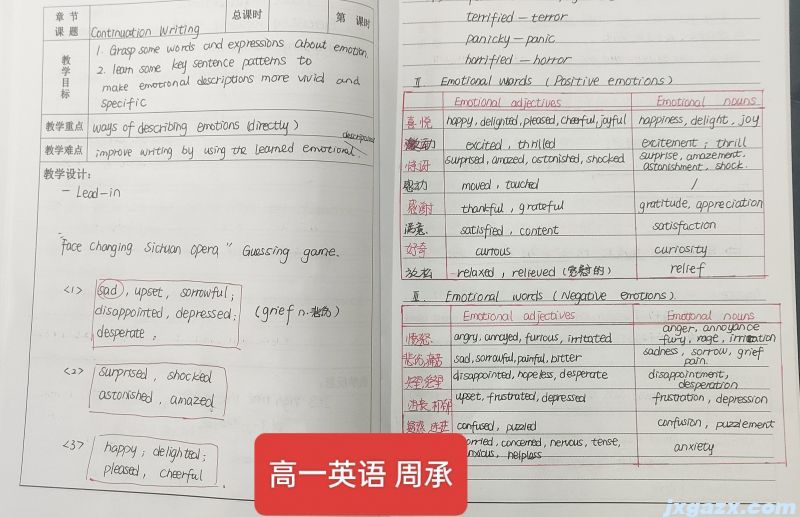 章节
课题 Continuation Writing 总课时 第 课时
教学目标 1. Grasp some words and expressions about emotion.
2. learn some key sentence patterns to
make emotional descriptions more vivid and
specific
教学重点 ways of describing emotions (directly)
教学难点 improve writing by using the learned emotional descriptions
教学设计:
一 Lead-in
"face changing Sichuan Opera" Guessing game.
<1> sad, upset, sorrowful;
disappointed, depressed;
desperate;
(grief n. 悲伤)
<2> surprised, shocked
astonished, amazed.
<3> happy; delighted;
pleased, cheerful.
terrified - terror
panicky - panic
horrified - horror
Ⅱ. Emotional words (Positive emotions)
Emotional adjectives Emotional nouns
喜悦 happy, delighted, pleased, cheerful, joyful happiness, delight, joy
激动 excited, thrilled excitement, thrill
惊讶 surprised, amazed, astonished, shocked surprise, amazement,
astonishment, shock.
感动 moved, touched /
感谢 thankful, grateful gratitude, appreciation
满意 satisfied, content satisfaction
好奇 curious curiosity
放松 relaxed, relieved relief
Ⅲ. Emotional words (Negative emotions)
Emotional adjectives Emotional nouns
愤怒 angry, annoyed, furious, irritated anger, annoyance
fury, rage, irritation
悲伤,痛苦 sad, sorrowful, painful, bitter sadness, sorrow, grief
pain.
失望,绝望 disappointed, hopeless, desperate disappointment,
desperation
沮丧,抑郁 upset, frustrated, depressed frustration, depression
疑惑,迷茫 confused, puzzled confusion, puzzlement
worried, concerned, nervous, tense,
anxious, helpless anxiety
高一英语 周承
jxgazx.com